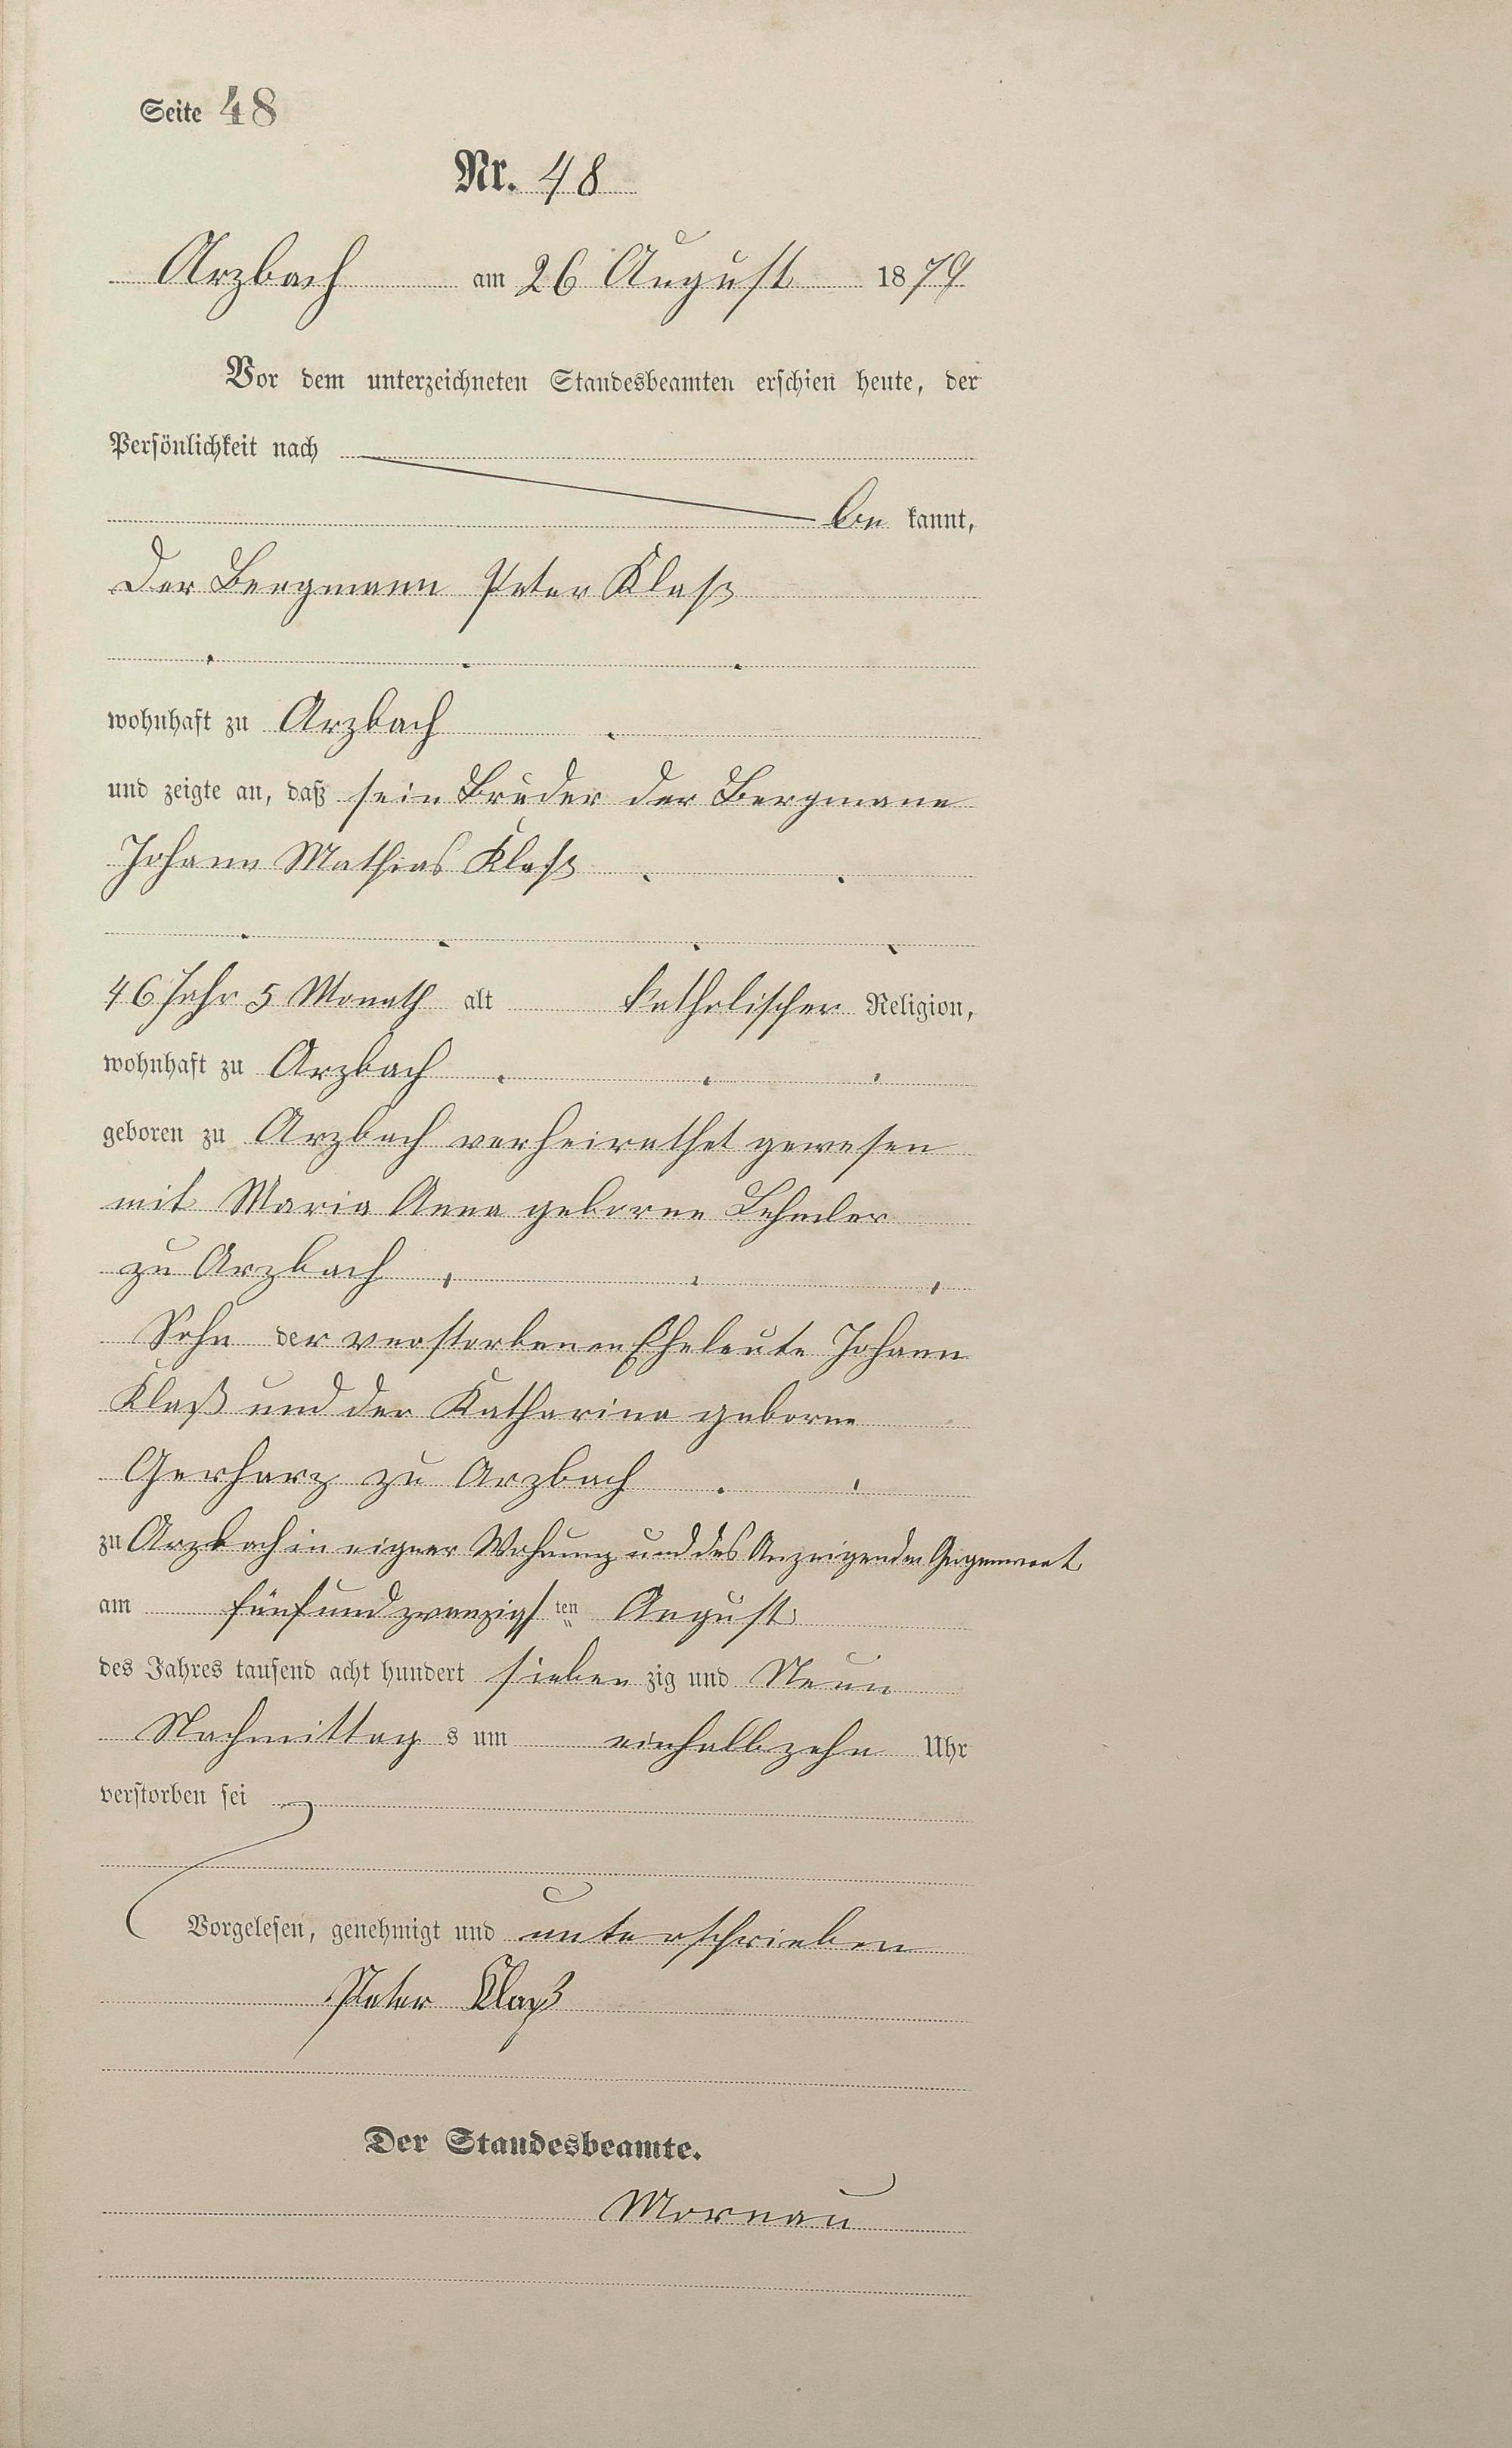 Seite 48
Nr. 48
Arzbach am 26 August 1879
Vor dem unterzeichneten Standesbeamten erschien heute, der
Persönlichkeit nach
be kannt,
Der Bergmann Peter Klaß
wohnhaft zu Arzbach
und zeigte an, daß sein Bruder der Bergmann
Johann Mathias Klaß
46 Jahr 5 Monath alt katholischer Religion,
wohnhaft zu Arzbach
geboren zu Arzbach verheirathet gewesen
mit Maria Anna geborne Lehmler
zu Arzbach
Sohn der verstorbenen Eheleute Johann
Klaß und der Katharina geborne
Gerharz zu Arzbach
zu Arzbach in eigner Wohnung und des Anzeigenden Gegenwart
am fünfundzwanzigsten August
des Jahres tausend acht hundert sieben zig und Neun
Nachmittag s um einhalbzehn Uhr
verstorben sei
Vorgelesen, genehmigt und unterschrieben
Peter Klaß
Der Standesbeamte.
Mornau